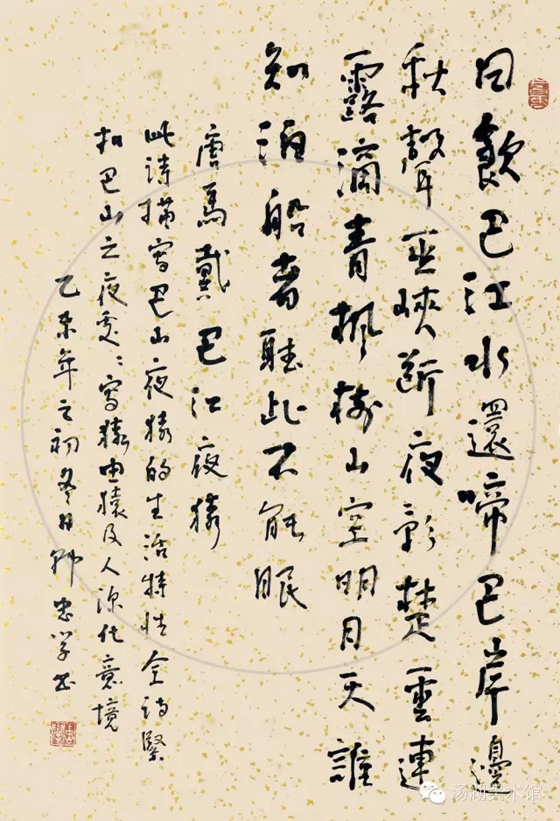 日飲巴江水還啼巴岸邊
秋聲巫峽斷夜影楚雲連
露滴青楓樹山空明月天誰
知泊船者聽此不能眠
唐馬戴巴江夜猿
此詩描寫巴山夜猿的生活特性全詩緊
扣巴山之夜處處寫猿由猿及人深化意境
乙未年之初冬日 忠学书
汤湖美术馆